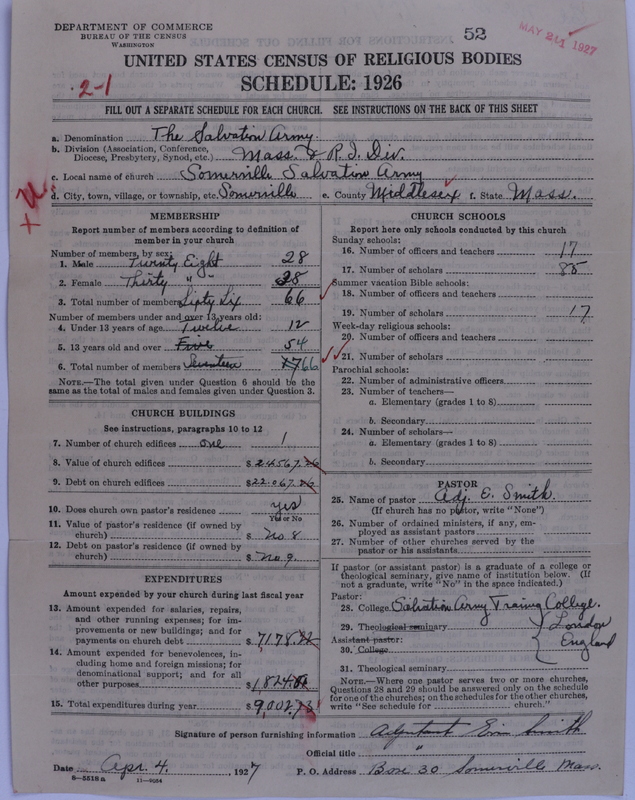 DEPARTMENT OF COMMERCE
BUREAU OF THE CENSUS
WASHINGTON
52
MAY 21 1927
UNITED STATES CENSUS OF RELIGIOUS BODIES
SCHEDULE: 1926
2-1
FILL OUT A SEPARATE SCHEDULE FOR EACH CHURCH. SEE INSTRUCTIONS ON THE BACK OF THIS SHEET
a. Denomination The Salvation Army.
b. Division (Association, Conference, Diocese, Presbytery, Synod, etc.) Mass. & R.I. Div.
c. Local name of church Somerville Salvation Army
d. City, town, village, or township, etc. Somerville e. County Middlesex f. State Mass.
MEMBERSHIP
Report number of members according to definition of
member in your church
Number of members, by sex:
1. Male Twenty Eight 28
2. Female Thirty " " 38
3. Total number of members Sixty Six 66
Number of members under and over 13 years old:
4. Under 13 years of age Twelve 12
5. 13 years old and over Five 54
6. Total number of members Seventeen 17 66
NOTE.—The total given under Question 6 should be the
same as the total of males and females given under Question 3.
CHURCH BUILDINGS
See instructions, paragraphs 10 to 12
7. Number of church edifices one 1
8. Value of church edifices $24567.26
9. Debt on church edifices $22.067.26
10. Does church own pastor's residence yes
Yes or No
11. Value of pastor's residence (if owned by
church) $ No. 8
12. Debt on pastor's residence (if owned by
church) $ No. 9.
EXPENDITURES
Amount expended by your church during last fiscal year
13. Amount expended for salaries, repairs,
and other running expenses; for im-
provements or new buildings; and for
payments on church debt $7,178
14. Amount expended for benevolences, in-
cluding home and foreign missions; for
denominational support; and for all
other purposes $1,824
15. Total expenditures during year $9,002
CHURCH SCHOOLS
Report here only schools conducted by this church
Sunday schools:
16. Number of officers and teachers 17
17. Number of scholars 85
Summer vacation Bible schools:
18. Number of officers and teachers
19. Number of scholars 17
Week-day religious schools:
20. Number of officers and teachers
21. Number of scholars
Parochial schools:
22. Number of administrative officers
23. Number of teachers—
a. Elementary (grades 1 to 8)
b. Secondary
24. Number of scholars—
a. Elementary (grades 1 to 8)
b. Secondary
PASTOR
25. Name of pastor Adj. E. Smith.
(If church has no pastor, write "None")
26. Number of ordained ministers, if any, em-
ployed as assistant pastors
27. Number of other churches served by the
pastor or his assistants
If pastor (or assistant pastor) is a graduate of a college or
theological seminary, give name of institution below. (If
not a graduate, write "No" in the space indicated.)
Pastor:
28. College Salvation Army Traing College.
29. Theological seminary London
Assistant pastor: England
30. College
31. Theological seminary
NOTE.—Where one pastor serves two or more churches,
Questions 28 and 29 should be answered only on the schedule
for one of the churches; on the schedules for the other churches,
write "See schedule for church."
Signature of person furnishing information Adjutant Smith
Official title "
Date Apr. 4. , 1927 P. O. Address Box 30 Somerville Mass.
8—5518a 11—9264